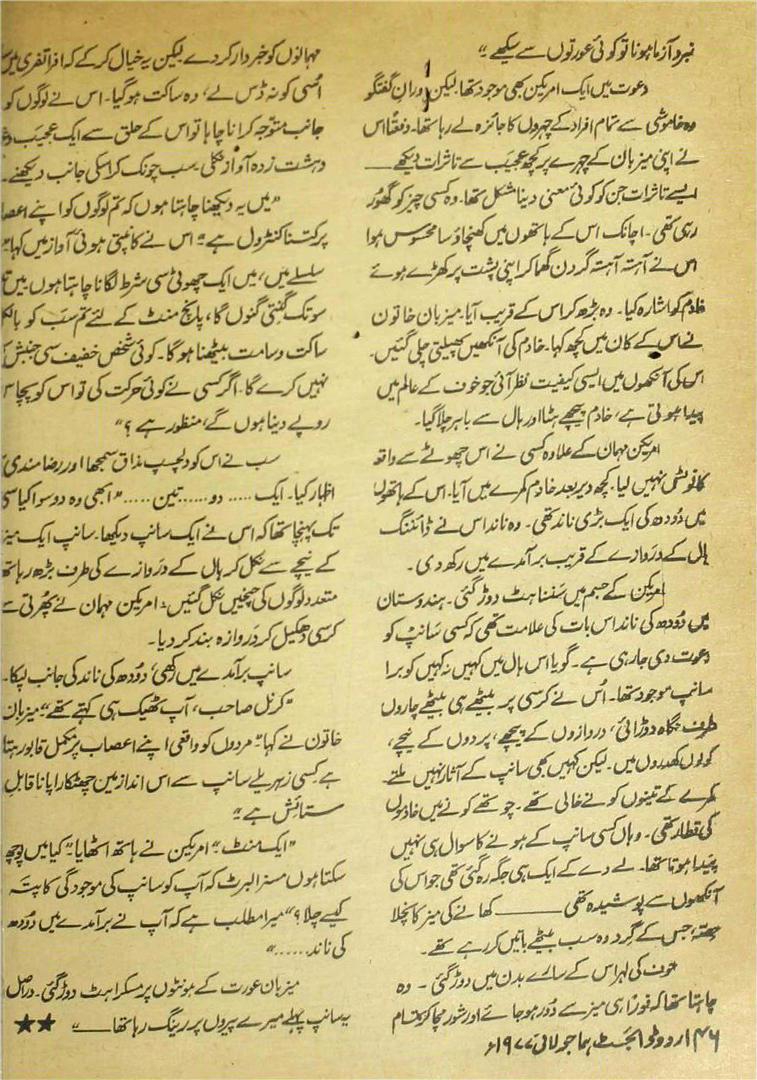 نبرد آزما ہونا تو کوئی عورتوں سے سیکھے۔"
دعوت میں ایک امریکن بھی موجود تھا۔ لیکن دورانِ گفتگو
وہ خاموشی سے تمام افراد کے چہروں کا جائزہ لے رہا تھا۔ دفعتاً اس
نے اپنی میزبان کے چہرے پر کچھ عجیب سے تاثرات دیکھے ــــــ
ایسے تاثرات جن کو کوئی معنی دینا مشکل تھا۔ وہ کسی چیز کو گھور
رہی تھی۔ اچانک اس کے ہاتھوں میں کھنچاؤ سا محسوس ہوا
اس نے آہستہ آہستہ گردن گھما کر اپنی پشت پر کھڑے ہوئے
خادم کو اشارہ کیا۔ وہ بڑھ کر اس کے قریب آیا۔ میزبان خاتون
نے اس کے کان میں کچھ کہا۔ خادم کی آنکھیں پھیلتی چلی گئیں۔
اس کی آنکھوں میں ایسی کیفیت نظر آئی جو خوف کے عالم میں
پیدا ہوتی ہے، خادم پیچھے ہٹا اور ہال سے باہر چلا گیا۔
امریکن مہمان کے علاوہ کسی نے اس چھوٹے سے واقعہ
کا نوٹس نہیں لیا۔ کچھ دیر بعد خادم کمرے میں آیا۔ اس کے ہاتھوں
میں دودھ کی ایک بڑی ناند تھی۔ وہ ناند اس نے ڈائننگ
ہال کے دروازے کے قریب برآمدے میں رکھ دی۔
امریکن کے جسم میں سنسناہٹ دوڑ گئی۔ ہندوستان
میں دودھ کی ناند اس بات کی علامت تھی کہ کسی سانپ کو
دعوت دی جا رہی ہے۔ گویا اس ہال میں کہیں نہ کہیں کوبرا
سانپ موجود تھا۔ اُس نے کرسی پر بیٹھے ہی بیٹھے چاروں
طرف نگاہ دوڑائی، دروازوں کے پیچھے، پردوں کے نیچے،
کونوں کھدروں میں۔ لیکن کہیں بھی سانپ کے آثار نہیں ملتے
کمرے کے تینوں کونے خالی تھے۔ چوتھے کونے میں خادموں
کی قطار تھی۔ وہاں کسی سانپ کے ہونے کا سوال ہی نہیں
پیدا ہوتا تھا۔ لے دے کے ایک ہی جگہ رہ گئی تھی جو اس کی
آنکھوں سے پوشیدہ تھی ــــــ کھانے کی میز کا نچلا
حصّہ، جس کے گرد وہ سب بیٹھے باتیں کر رہے تھے۔
خوف کی لہر اس کے سارے بدن میں دوڑ گئی۔ وہ
چاہتا تھا کہ فوراً ہی میز سے دور ہو جائے اور شور مچا کر تمام
۴۶ اردو ڈائجسٹ ہما جولائی ۱۹۷۷ء
مہمانوں کو خبردار کر دے لیکن یہ خیال کر کے کہ افراتفری میں
اُسی کو نہ ڈس لے، وہ ساکت ہو گیا۔ اس نے لوگوں کو
جانب متوجہ کرانا چاہا تو اس کے حلق سے ایک عجیب
دہشت زدہ آواز نکلی۔ سب چونک کر اسکی جانب دیکھنے
"میں یہ دیکھنا چاہتا ہوں کہ تم لوگوں کو اپنے اعصا
پر کتنا کنٹرول ہے" اس نے کانپتی ہوئی آواز میں کہا
سلسلے میں، میں ایک چھوٹی سی شرط لگانا چاہتا ہوں۔ میں
سو تک گنتی گنوں گا، پانچ منٹ کے لئے تم سب کو بالکل
ساکت و سامت بیٹھنا ہو گا۔ کوئی شخص خفیف سی جنبش
نہیں کرے گا۔ اگر کسی نے کوئی حرکت کی تو اس کو پچاس
روپے دینا ہوں گے، منظور ہے؟"
سب نے اس کو دلچسپ مذاق سمجھا اور رضامندی
اظہار کیا۔ ایک ..... دو ..... تین ..... "ابھی وہ دو سو اکیاسی
تک پہنچا تھا کہ اس نے ایک سانپ دیکھا۔ سانپ ایک میز
کے نیچے سے نکل کر ہال کے دروازے کی طرف بڑھ رہا تھا
متعدد لوگوں کی چیخیں نکل گئیں۔ امریکن مہمان نے پھرتی سے
کرسی دھکیل کر دروازہ بند کر دیا۔
سانپ برآمدے میں رکھی، دودھ کی ناند کی جانب لپکا۔
"کرنل صاحب، آپ ٹھیک ہی کہتے تھے" میزبان
خاتون نے کہا "مردوں کو واقعی اپنے اعصاب پر مکمل قابو رہتا
ہے کسی زہریلے سانپ سے اس انداز میں چھٹکارا پانا قابلِ
ستائش ہے۔"
"ایک منٹ" امریکن نے ہاتھ اٹھایا۔ "کیا میں پوچھ
سکتا ہوں مسز البرٹ کہ آپ کو سانپ کی موجودگی کا پتہ
کیسے چلا؟" میرا مطلب ہے کہ آپ نے برآمدے میں دودھ
کی ناند ......"
میزبان عورت کے ہونٹوں پر مسکراہٹ دوڑ گئی۔ دراصل
یہ سانپ پہلے میرے پیروں پر رینگ رہا تھا ــــــ" ★★